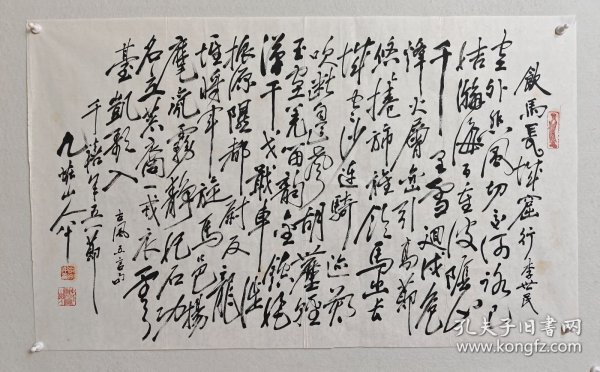 飲馬長城窟行 李世民
塞外悲風切交河冰已
結瀚海百重波陰山
千里雪迴戍危
烽火層巒引高節
悠悠捲旆旌飲馬出長
城寒沙連騎跡朔
吹斷邊聲胡塵清
玉塞羌笛韻金鉦絕
漠干戈戢車徒
振原隰都尉反龍
堆將軍旋馬邑揚
麾氛霧靜紀石功
名立荒裔一戎衣靈
臺凱歌入
古風五言
千禧年五一節
山人
孔夫子旧书网
www.kongfz.com